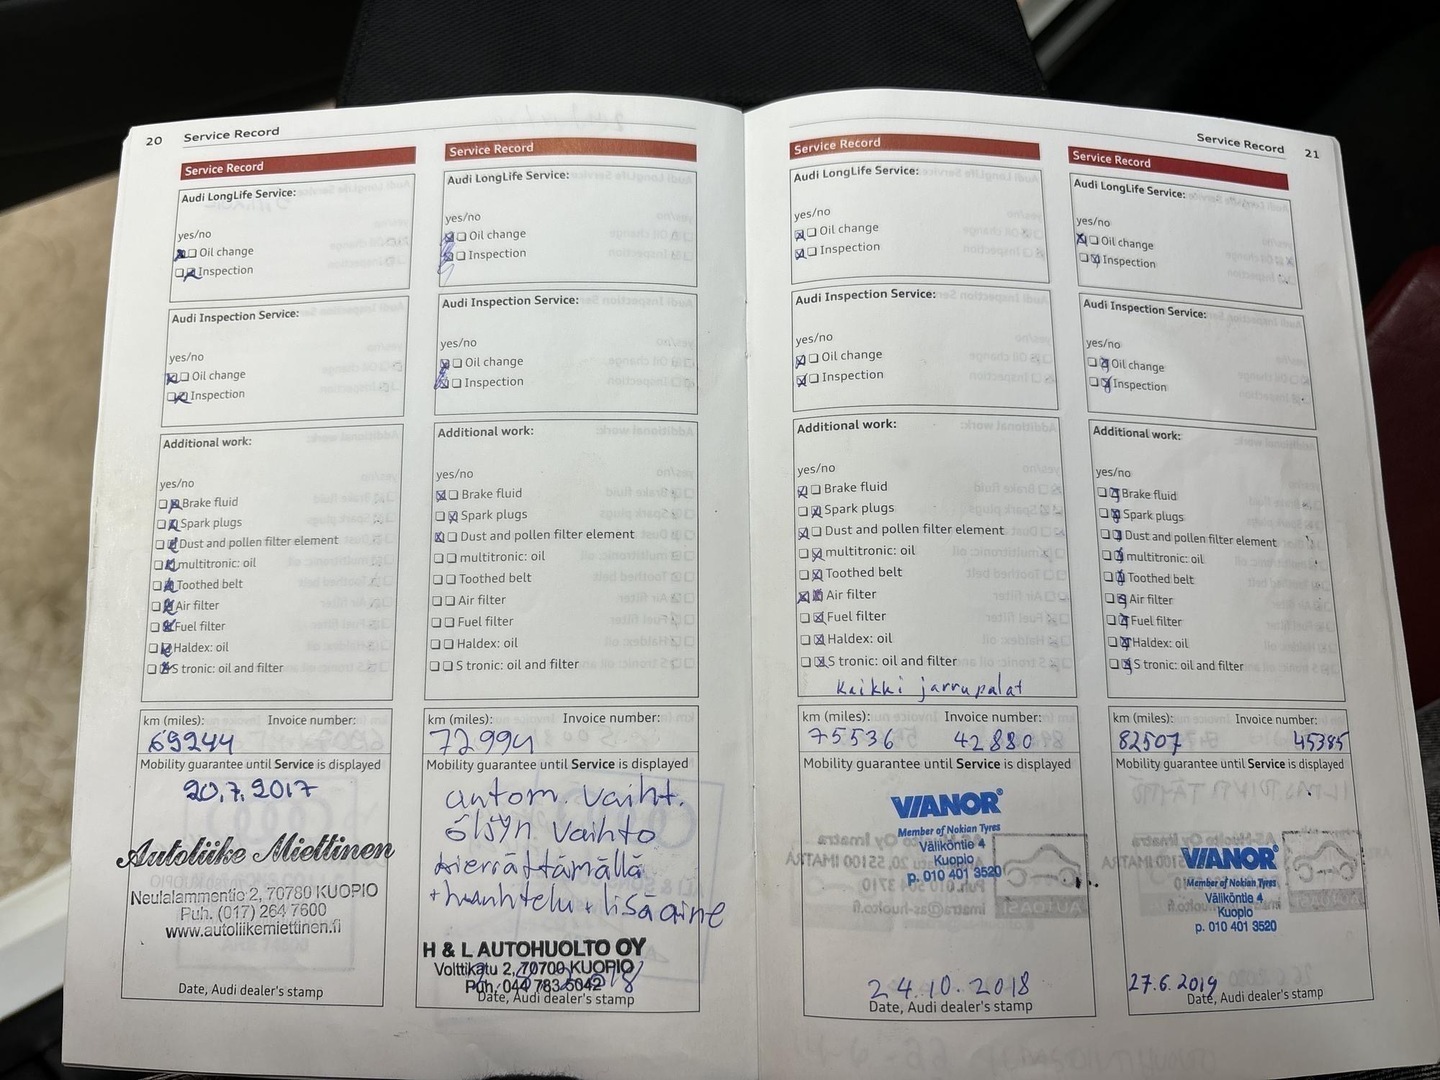 20 Service Record
Service Record
Audi LongLife Service:
yes/no
Oil change
Inspection
Audi Inspection Service:
yes/no
Oil change
Inspection
Additional work:
yes/no
Brake fluid
Spark plugs
Dust and pollen filter element
multitronic: oil
Toothed belt
Air filter
Fuel filter
Haldex: oil
S tronic: oil and filter
km (miles): Invoice number:
69244
Mobility guarantee until Service is displayed
20.7.2017
Autoliike Miettinen
Neulalammentie 2, 70780 KUOPIO
Puh. (017) 264 7600
www.autoliikemiettinen.fi
Date, Audi dealer's stamp
Service Record
Audi LongLife Service:
yes/no
Oil change
Inspection
Audi Inspection Service:
yes/no
Oil change
Inspection
Additional work:
yes/no
Brake fluid
Spark plugs
Dust and pollen filter element
multitronic: oil
Toothed belt
Air filter
Fuel filter
Haldex: oil
S tronic: oil and filter
km (miles): Invoice number:
72994
Mobility guarantee until Service is displayed
autom. vaiht.
öljyn vaihto
kierrättämällä
+huuhtelu + lisäaine
H & L AUTOHUOLTO OY
Volttikatu 2, 70700 KUOPIO
Puh. 044 783 5042
Date, Audi dealer's stamp
Service Record 21
Service Record
Audi LongLife Service:
yes/no
Oil change
Inspection
Audi Inspection Service:
yes/no
Oil change
Inspection
Additional work:
yes/no
Brake fluid
Spark plugs
Dust and pollen filter element
multitronic: oil
Toothed belt
Air filter
Fuel filter
Haldex: oil
S tronic: oil and filter
Kaikki jarrupalat
km (miles): Invoice number:
75536 42880
Mobility guarantee until Service is displayed
VIANOR
Member of Nokian Tyres
Väliköntie 4
Kuopio
p. 010 401 3520
24.10.2018
Date, Audi dealer's stamp
Service Record
Audi LongLife Service:
yes/no
Oil change
Inspection
Audi Inspection Service:
yes/no
Oil change
Inspection
Additional work:
yes/no
Brake fluid
Spark plugs
Dust and pollen filter element
multitronic: oil
Toothed belt
Air filter
Fuel filter
Haldex: oil
S tronic: oil and filter
km (miles): Invoice number:
82507 45385
Mobility guarantee until Service is displayed
VIANOR
Member of Nokian Tyres
Väliköntie 4
Kuopio
p. 010 401 3520
27.6.2019
Date, Audi dealer's stamp